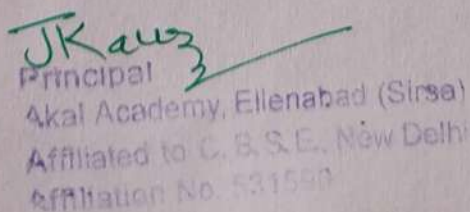 JKaur
Principal
Akal Academy, Ellenabad (Sirsa)
Affiliated to C. B. S. E., New Delhi
Affiliation No.